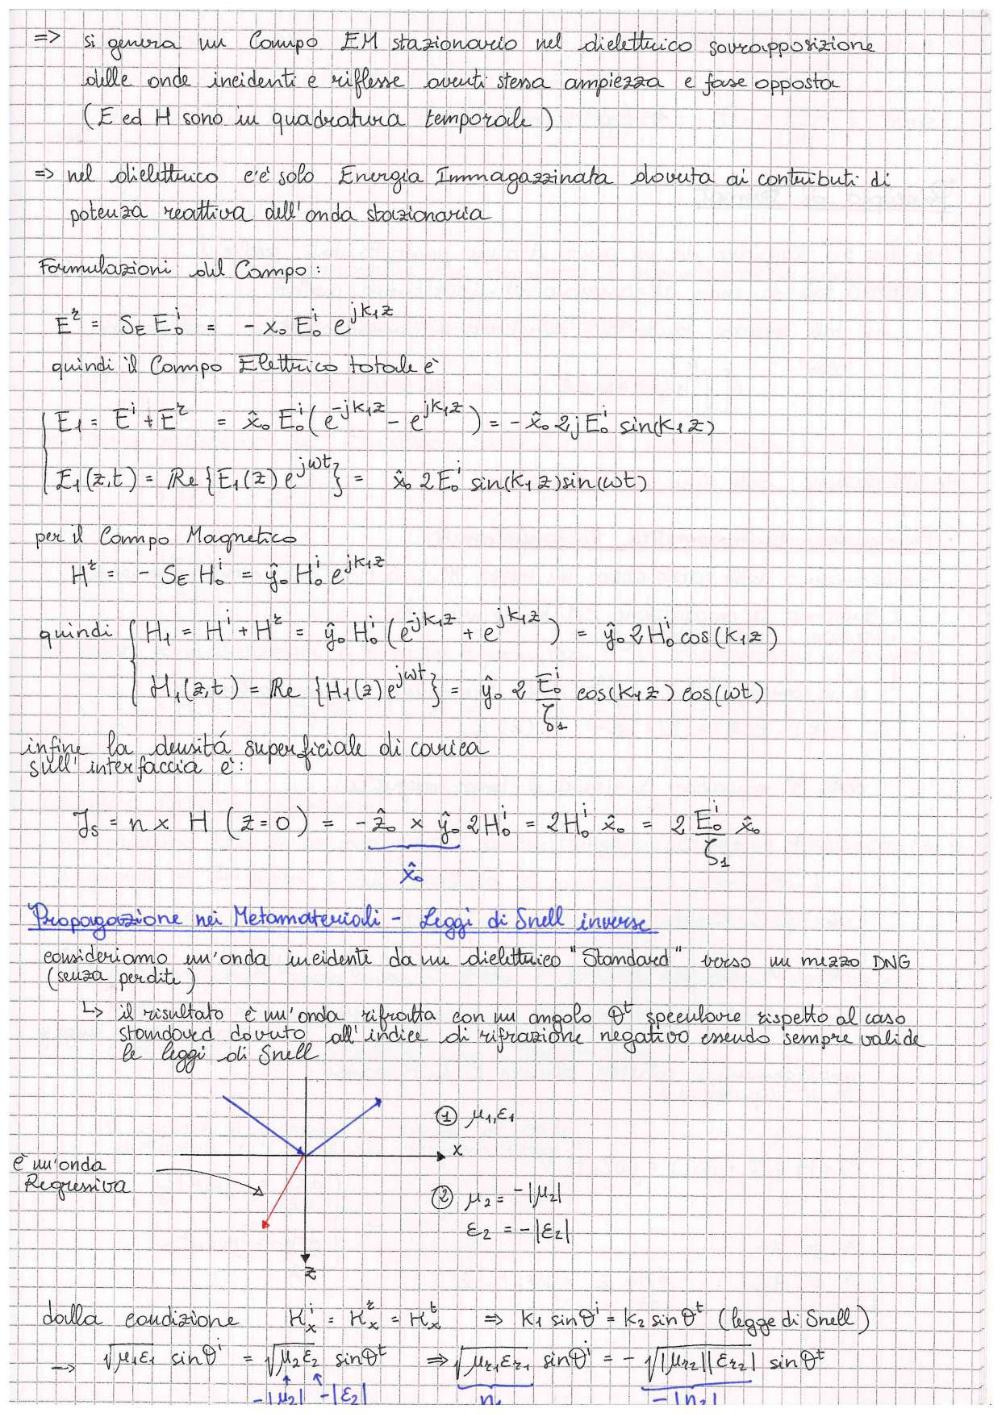 => si genera un Campo EM stazionario nel dielettrico sovrapposizione
delle onde incidenti e riflesse aventi stessa ampiezza e fase opposta
(E ed H sono in quadratura temporale)
=> nel dielettrico c'è solo Energia Immagazzinata dovuta ai contributi di
potenza reattiva dell'onda stazionaria
Formulazioni del Campo:
E^r = S_E E_0^i = - x_0 E_0^i e^{jk_1z}
quindi il Campo Elettrico totale è
E_1 = E^i + E^r = x̂_0 E_0^i (e^{-jk_1z} - e^{jk_1z}) = - x̂_0 2j E_0^i sin(k_1z)
E_1(z,t) = Re {E_1(z) e^{jωt}} = x̂_0 2 E_0^i sin(k_1z) sin(ωt)
per il Campo Magnetico
H^r = - S_E H_0^i = ŷ_0 H_0^i e^{jk_1z}
quindi { H_1 = H^i + H^r = ŷ_0 H_0^i (e^{-jk_1z} + e^{jk_1z}) = ŷ_0 2 H_0^i cos(k_1z)
H_1(z,t) = Re {H_1(z) e^{jωt}} = ŷ_0 2 E_0^i/ζ_1 cos(k_1z) cos(ωt)
infine la densitá superficiale di carica
sull'interfaccia è:
J_s = n x H (z=0) = - ẑ_0 × ŷ_0 2H_0^i = 2H_0^i x̂_0 = 2 E_0^i/ζ_1 x̂_0
x̂_0
Propagazione nei Metamateriali - Leggi di Snell inverse
consideriamo un'onda incidente da un dielettrico "Standard" verso un mezzo DNG
(senza perdite)
↳ il risultato è un'onda rifratta con un angolo θ^t speculare rispetto al caso
standard dovuto all'indice di rifrazione negativo essendo sempre valide
le leggi di Snell
① μ_1, ε_1
x
è un'onda
Regressiva
② μ_2 = -|μ_2|
ε_2 = -|ε_2|
z
dalla condizione K_x^i = K_x^r = K_x^t => K_1 sinθ^i = K_2 sinθ^t (legge di Snell)
→ √μ_1ε_1 sinθ^i = √μ_2ε_2 sinθ^t => √μ_{r1}ε_{r1} sinθ^i = - √|μ_{r2}||ε_{r2}| sinθ^t
-|μ_2| -|ε_2| n_1 -|n_2|